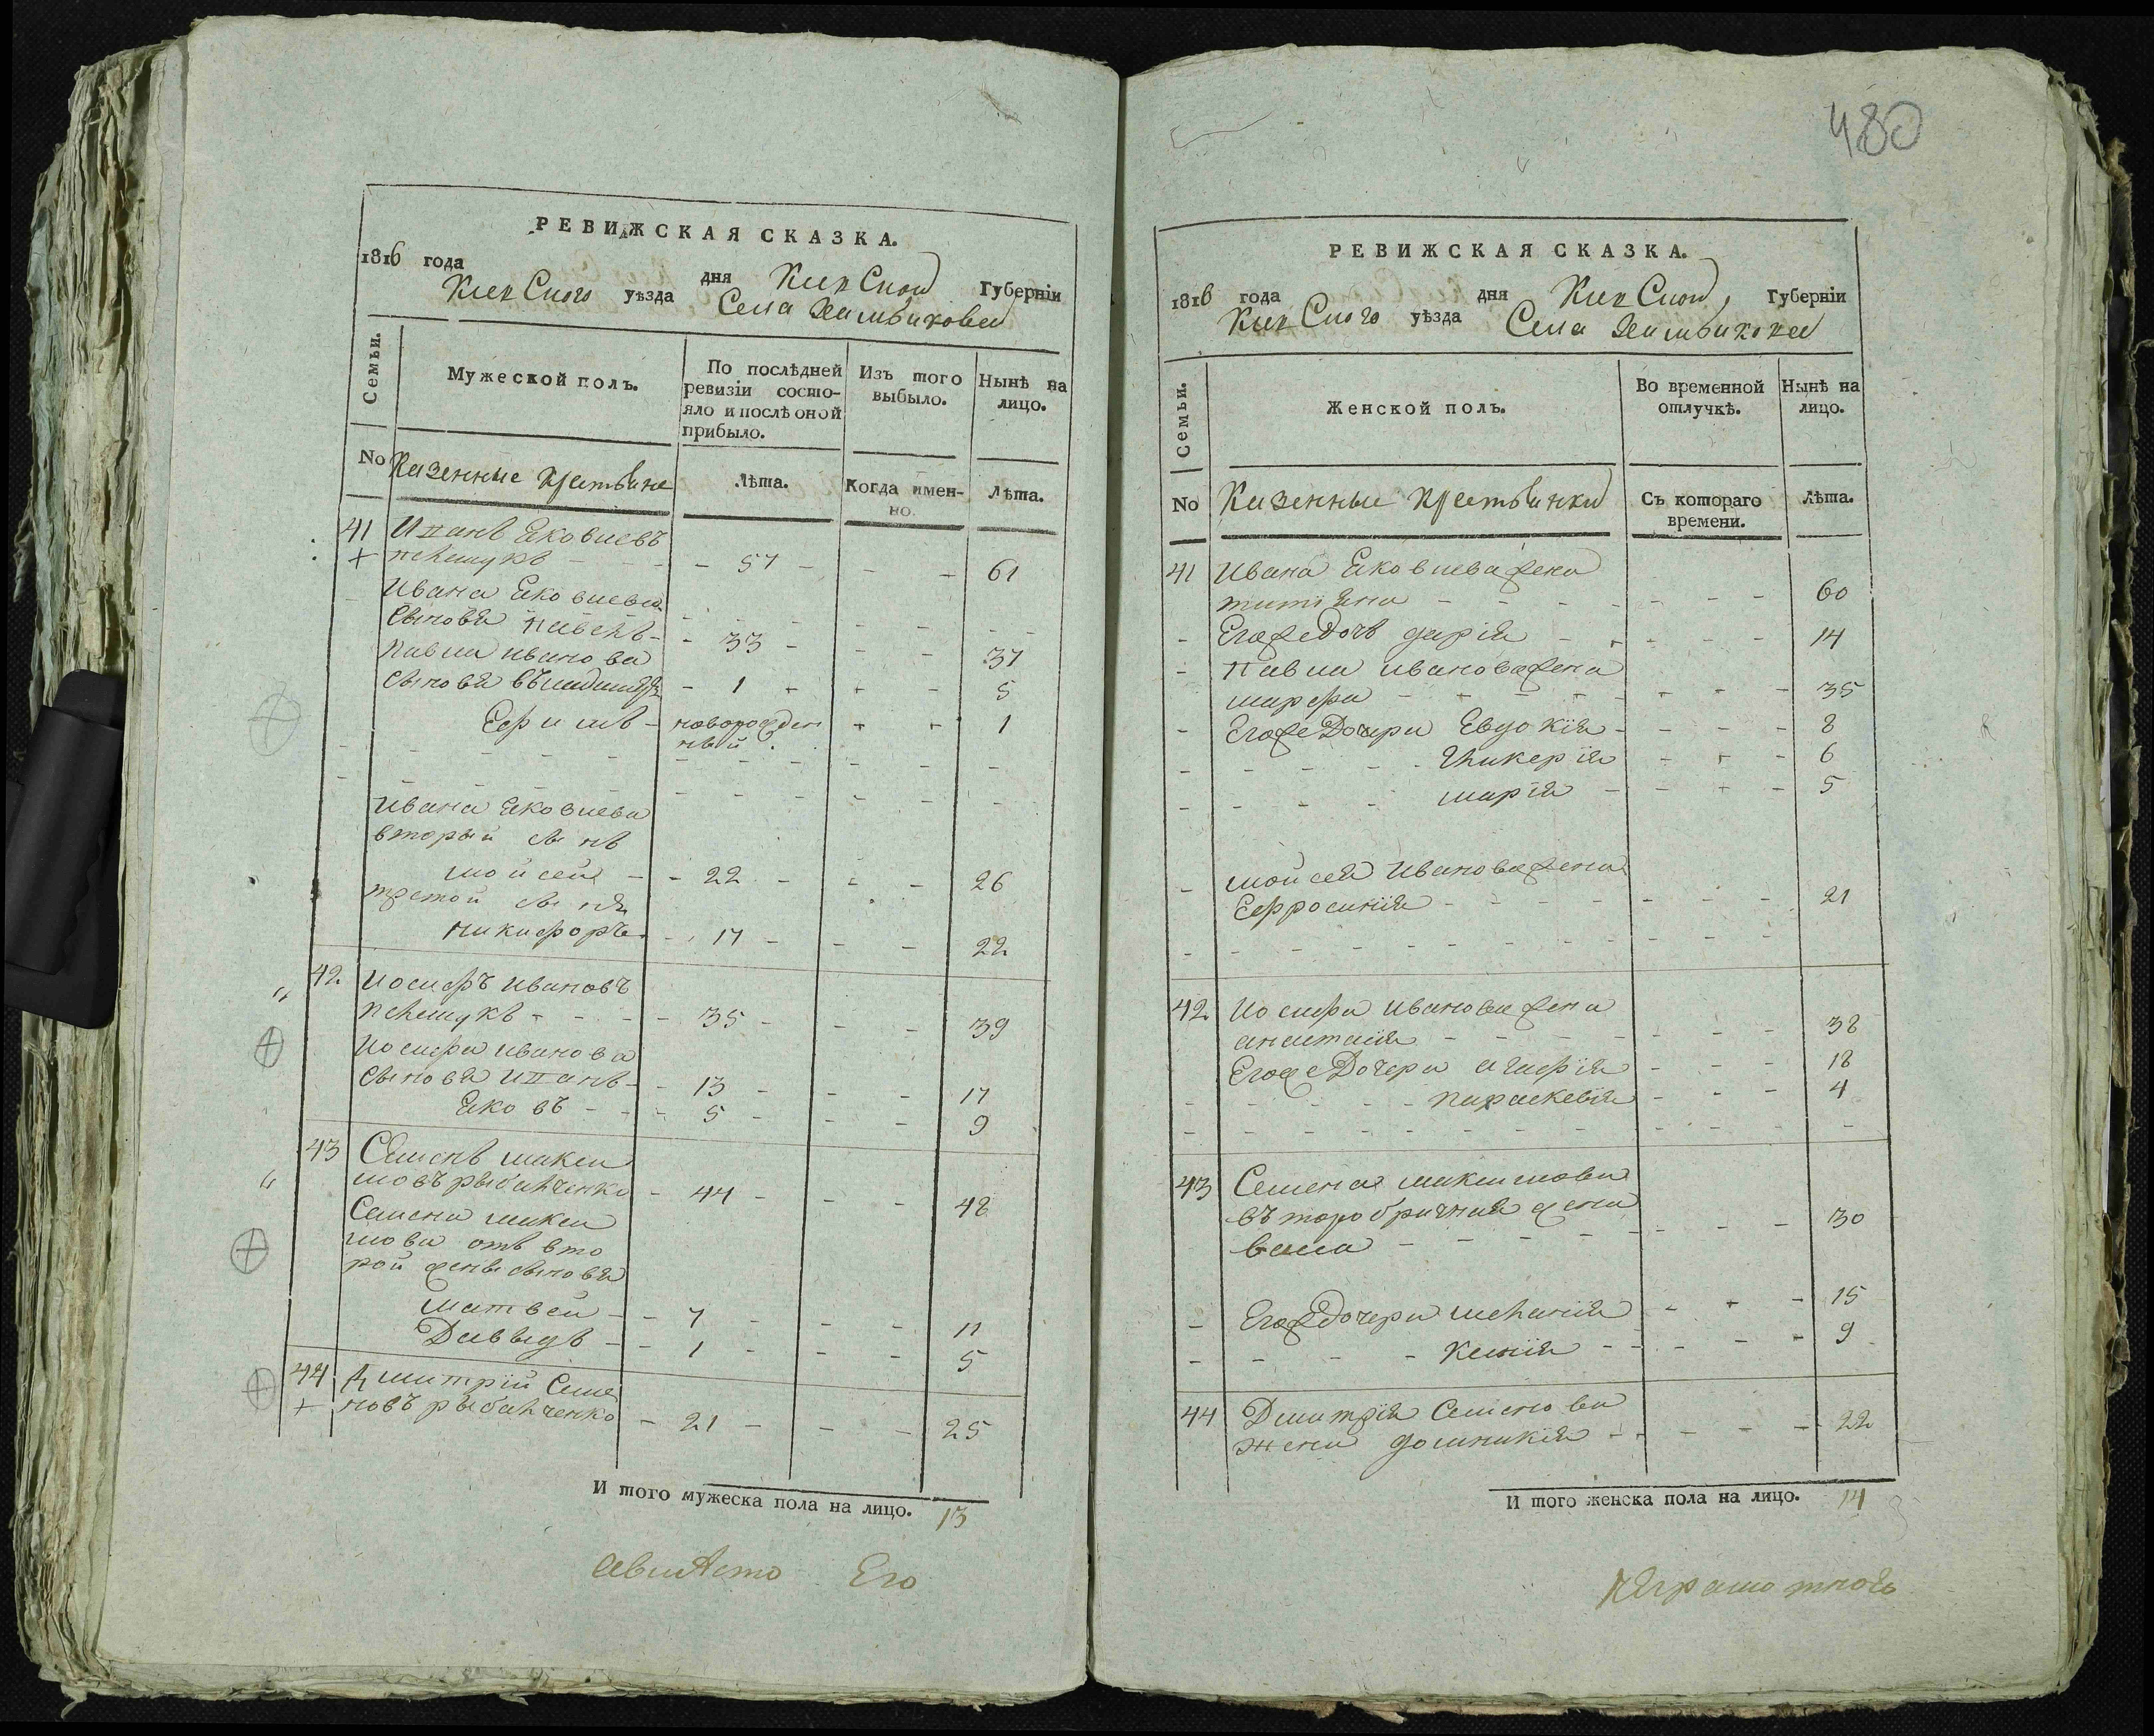 РЕВИЖСКАЯ СКАЗКА.
1816 года дня Киевской Губерніи
Киевского уѣзда Села
Семьи.
Мужеской полъ.
По послѣдней ревизіи состо-
яло и послѣ оной
прибыло.
Изъ того
выбыло.
Нынѣ на
лицо.
No Казенные крестьяне
Лѣта.
Когда имен-
но.
Лѣта.
41 Иванъ Яковлевъ
- 57 - - - 61
Ивана Яковлева
сыновя Павелъ - - 33 - - - 37
Павла Иванова
сыновя - 1 - - - 5
Ефимъ - новорожден
ный - - 1
Ивана Яковлева
вторый сынъ
Мойсей - - 22 - - - 26
третой сынъ
Никифоръ - 17 - - - 22
42 Иосифъ Ивановъ
- - - - 35 - - - 39
Иосифа Иванова
сыновя Иванъ - - 13 - - - 17
Яковъ - - - 5 - - - 9
43 Семенъ Макси
мовъ Рыбалченко - 44 - - - 48
Семена Макси
мова отъ вто
рой жены сыновя
Матвей - - 7 - - - 11
Давыдъ - - 1 - - - 5
44 Дмитрій Семе
новъ Рыбалченко - 21 - - - 25
И того мужеска пола на лицо. 13
Его
480
РЕВИЖСКАЯ СКАЗКА.
1816 года дня Киевской Губерніи
Киевского уѣзда Села
Семьи.
Женской полъ.
Во временной
отлучкѣ.
Нынѣ на
лицо.
No Казенные крестьянки
Съ котораго
времени.
Лѣта.
41 Ивана Яковлева жена
Татіяна - - - - - - - 60
- Егожедочъ Дарія - - - - - 14
- Павла Иванова жена
Марфа - - - - - - - 35
- Егоже Дочери Евдокія - - - - 8
- - - - - Гликерія - - - 6
- - - - - Марія - - - + - 5
- Мойсея Иванова жена
Ефросинія - - - - - - - 21
42 Иосифа Иванова жена
Анастасія - - - - - - 38
Егоже Дочери Агафія - - - 18
- - - - - - Параскевія - - - 4
43 Семена Максимова
второбрачная жена
- - - - - - - - 30
- Егоже дочери Меланія - - - 15
- - - - - Ксенія - - - - 9
44 Дмитрія Семенова
жена Домникія - - - - - 22
И того женска пола на лицо. 14